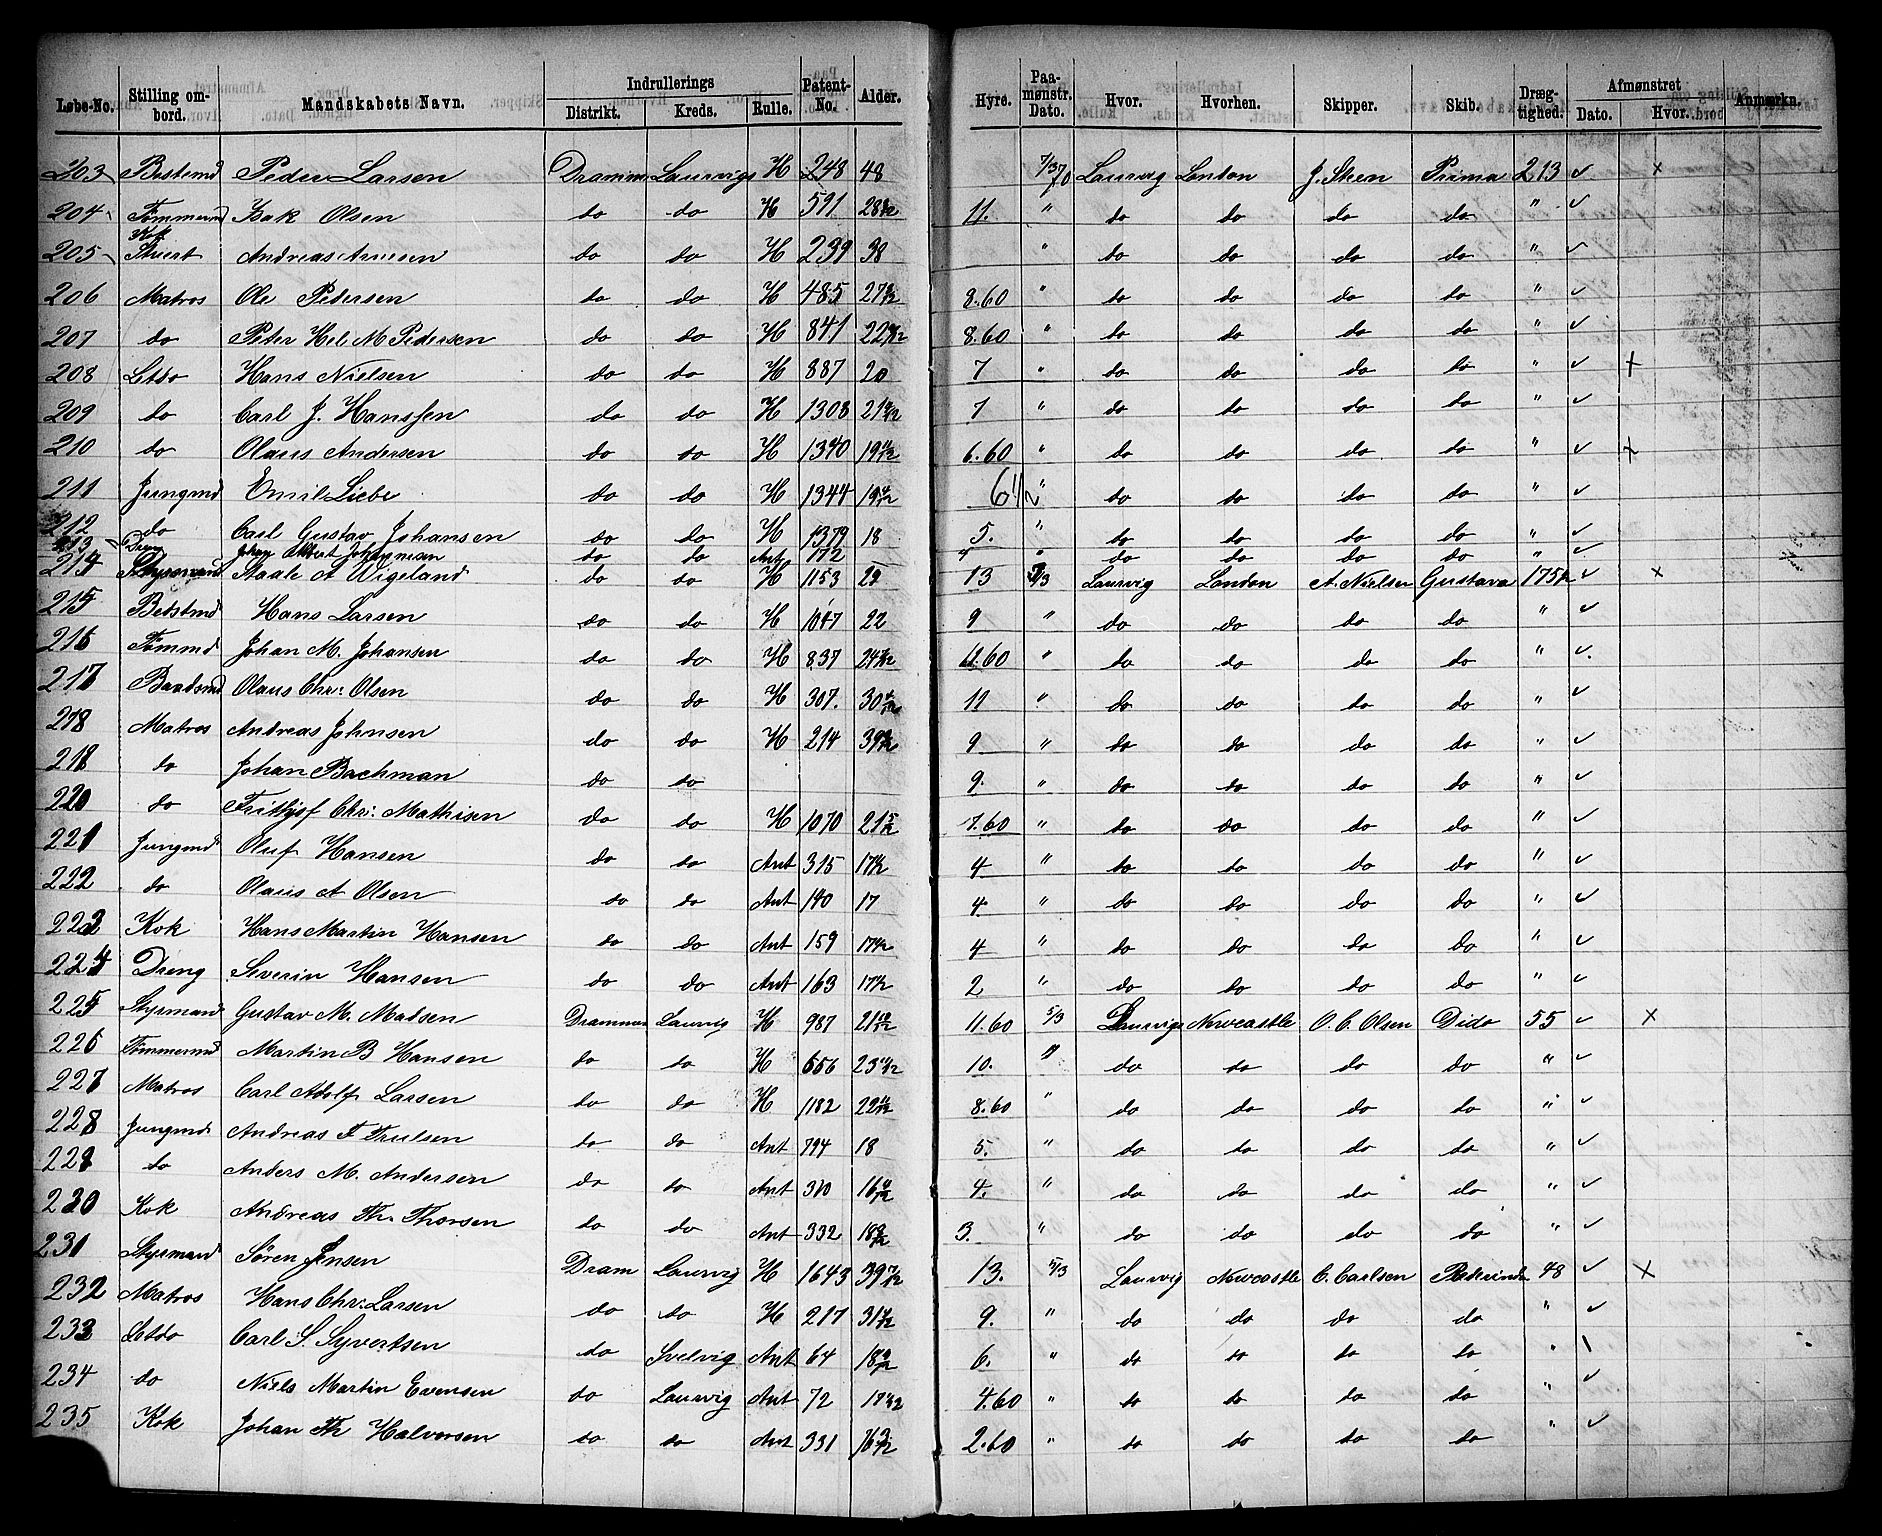 Løbe-No. Stilling ombord. Mandskabets Navn. Indrullerings Distrikt. Kreds. Rulle. Patent-No. Alder. Hyre. Paamønstr. Dato. Hvor. Hvorhen. Skipper. Skib. Drægtighed. Afmønstret Dato. Hvor. Anmærkn.
203 Bestmd Peder Larsen Drammen Laurvigs H 248 48 7/3 70 Laurvig London J. Steen Prima 213 ✓ x
204 Tømmermd Isak Olsen do do H 591 11. " do do do do " ✓
205 Kok Stuert Andreas Arnesen do do H 239 38 " do do do do " ✓
206 Matros Ole Pedersen do do H 485 8.60 " do do do do " ✓
207 do Peter Hel. M Pedersen do do H 841 8.60 " do do do do " ✓
208 Letdo Hans Nielsen do do H 887 20 7 " do do do do " ✓ +
209 do Carl J. Hanssen do do H 1308 7 " do do do do " ✓
210 do Olaus Andersen do do H 1340 6.60 " do do do do " ✓ +
211 Jungmd Emil Liebe do do H 1344 6 1/2 " do do do do " ✓
212 do Carl Gustav Johansen do do H 1379 18 5. " do do do do " ✓
213 Dreng Johan Albert Johannesen do do Ant 172 " do do do do " ✓
214 Styrmand Staale A Wigeland do do H 1153 Laurvig London A. Nielsen Gustava ✓ x
215 Betstmd Hans Larsen do do H 1047 22 9 " do do do do " ✓
216 Tømmd Johan M. Johansen do do H 837 11.60 " do do do do " ✓
217 Baadsmd Olaus Chr: Olsen do do H 307. 11 " do do do do " ✓
218 Matros Andreas Johnsen do do H 214 9 " do do do do " ✓
218 do Johan Bachman do do 9. " do do do do " ✓
220 do Frithjof Chr: Mathisen do do H 1070 21 5/12 7.60 " do do do do " ✓
221 Jungmd Oluf Hansen do do Ant 315 4 " do do do do " ✓
222 do Olaus A Olsen do do Ant 140 17 4 " do do do do " ✓
223 Kok Hans Martin Hansen do do Ant 159 4 " do do do do " ✓
224 Dreng Severin Hansen do do Ant 163 2 " do do do do " ✓
225 Styrmand Gustav M. Madsen Drammen Laurvig H 987 21 10/12 11.60 5/3 Laurvigs Newcastle O. C. Olsen Dido 55 ✓ x
226 Tømmermd Martin B Hansen do do H 656 10. " do do do do " ✓
227 Matros Carl Adolf Larsen do do H 1182 22 11/12 8.60 " do do do do " ✓
228 Jungmd Andreas F Trulsen do do Ant 794 18 5. " do do do do " ✓
228 do Anders M. Andersen do do Ant 310 4. " do do do do " ✓
230 Kok Andreas Th. Thorsen do do Ant 332 3. " do do do do " ✓
231 Styrmand Søren Jensen Dram Laurvig H 1643 13. 5/3 Laurvig Newcastle C. Carlsen 48 ✓ x
232 Matros Hans Chr: Larsen do do H 217 9. " do do do do " ✓
233 Letdo Carl S. Syvertsen do Svelvig Ant 64 6. " do do do do "
234 do Niels Martin Evensen do Laurvig Ant 72 4.60 " do do do do " ✓
235 Kok Johan Th Halvorsen do do Ant 331 16 3/12 2.60 " do do do do " ✓